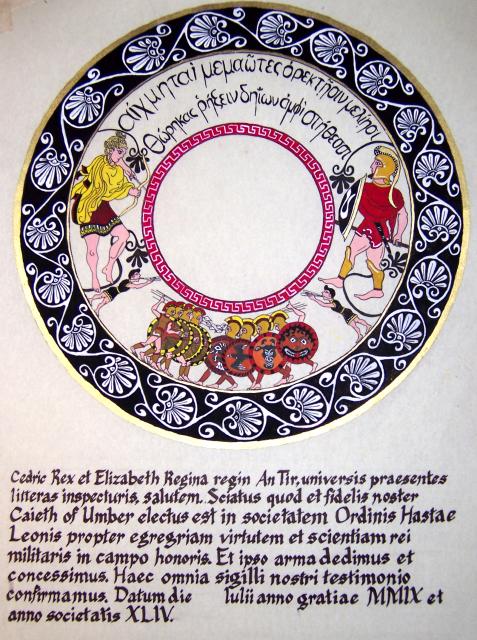 αἰχμηταὶ μεμαῶτες ὀρεκτῆσιν μελίησι
Θώρηκας ῥήξειν δηίων ἀμφὶ στήθεσσι
Cedric Rex et Elizabeth Regina regin An Tir, universis praesentes
litteras inspecturis, salutem. Sciatus quod et fidelis noster
Caieth of Umber electus est in societatem Ordinis Hastae
Leonis propter egregriam virtutem et scientiam rei
militaris in campo honoris. Et ipso arma dedimus et
concessimus. Haec omnia sigilli nostri testimonio
confirmamus. Datum die Iulii anno gratiae MMIX et
anno societatis XLIV.